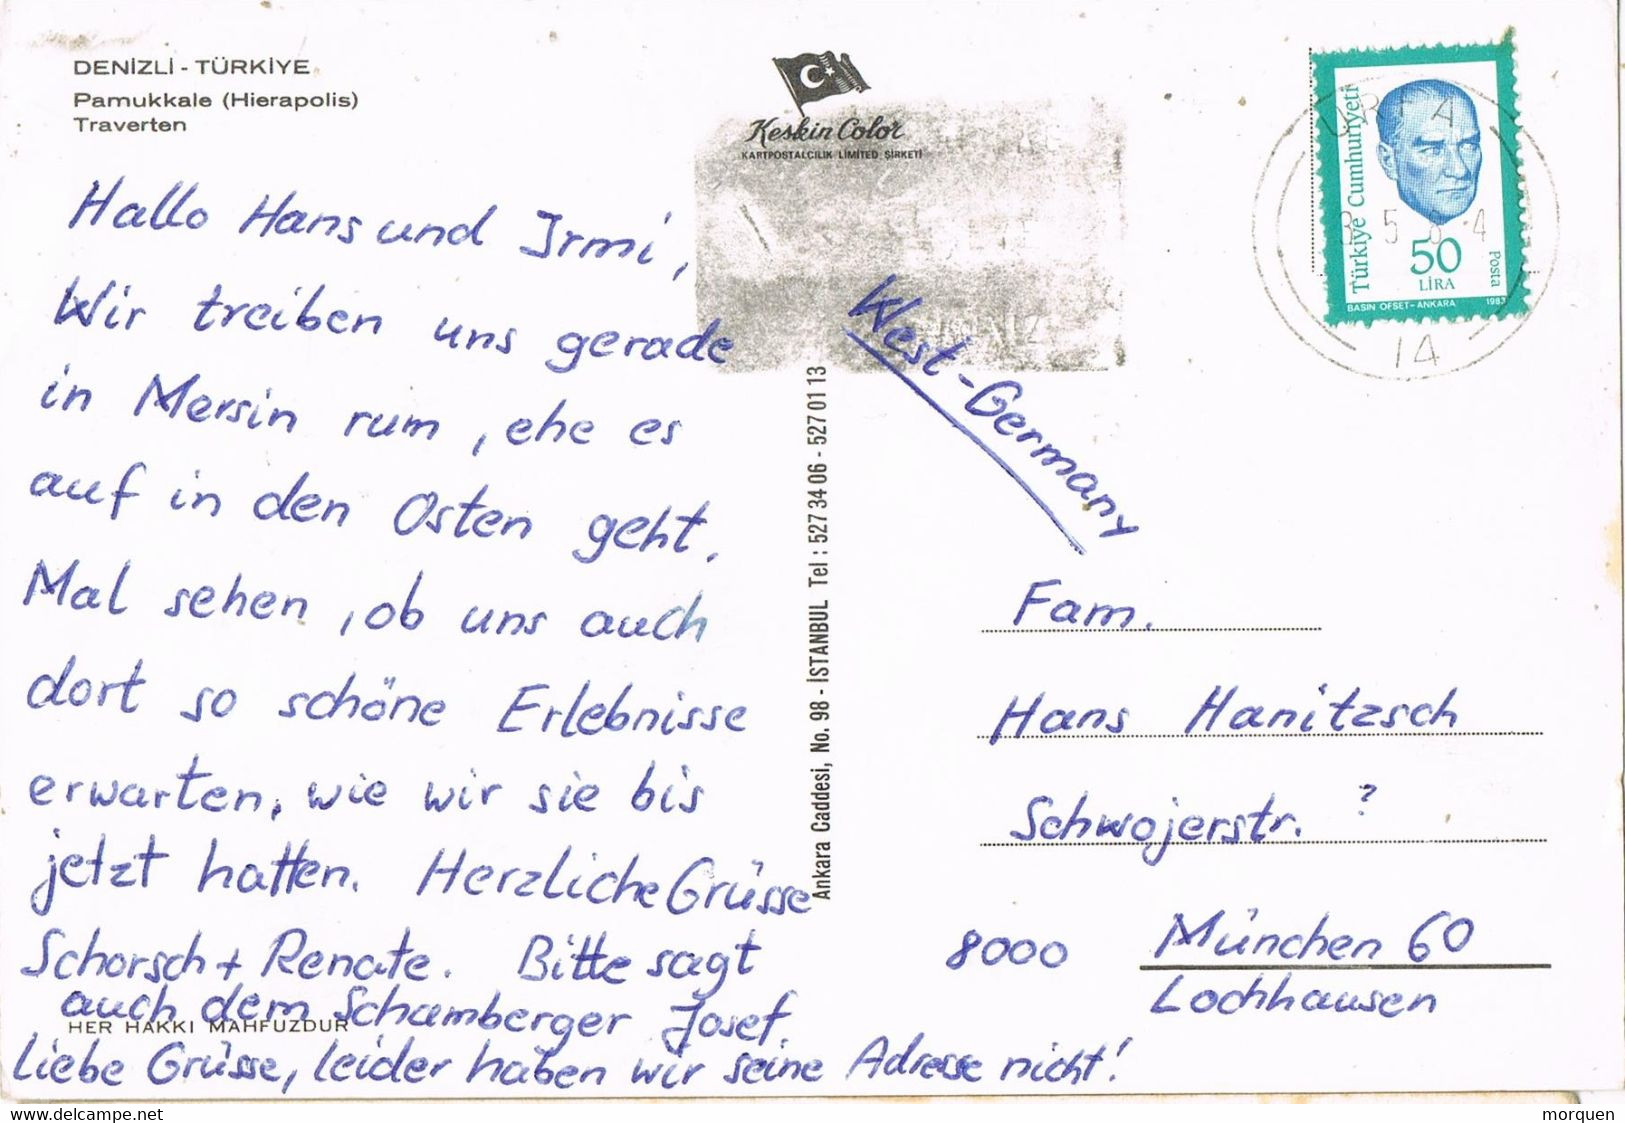 DENİZLİ - TÜRKİYE
Pamukkale (Hierapolis)
Traverten
Keskin Color
KARTPOSTALCILIK LIMITED ŞİRKETİ
Türkiye Cumhuriyeti
50
LİRA
Posta
BASIN OFSET - ANKARA 1983
URFA
5
4
14
Hallo Hans und Irmi,
Wir treiben uns gerade
in Mersin rum, ehe es
auf in den Osten geht.
Mal sehen, ob uns auch
dort so schöne Erlebnisse
erwarten, wie wir sie bis
jetzt hatten. Herzliche Grüsse
Schorsch + Renate. Bitte sagt
auch dem Schamberger Josef
liebe Grüsse, leider haben wir seine Adresse nicht!
HER HAKKI MAHFUZDUR
Ankara Caddesi, No. 98 - İSTANBUL Tel : 527 34 06 - 527 01 13
West-Germany
Fam.
Hans Hanitzsch
Schwojerstr. ?
8000 München 60
Lochhausen
delcampe.net
morquen